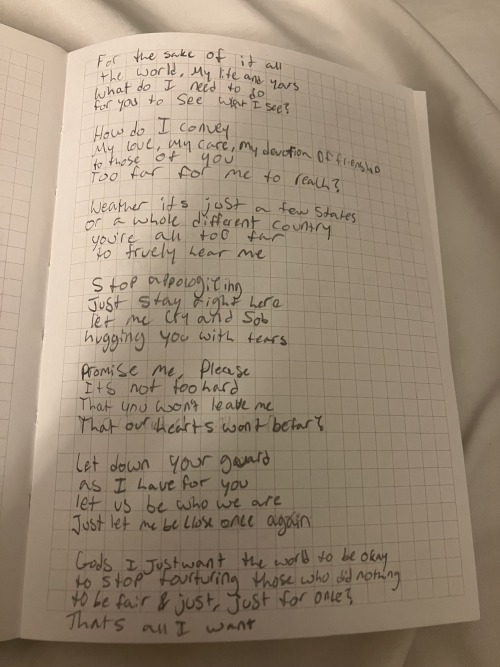 For the sake of it all
the world, My life and yours
what do I need to do
for you to see what I see?
How do I convey
My love, my care, my devotion of friendship
to those of you
Too far for me to reach?
Weather its just a few states
or a whole different country
you're all too far
to truely hear me
Stop appologiting
Just stay right here
let me cry and sob
hugging you with tears
Promise me, Please
Its not too hard
That you won't leave me
That our hearts wont be far?
Let down your guard
as I have for you
let us be who we are
Just let me be close once again
Gods I just want the world to be okay
to stop tourturing those who did nothing
to be fair & just, Just for once?
Thats all I want